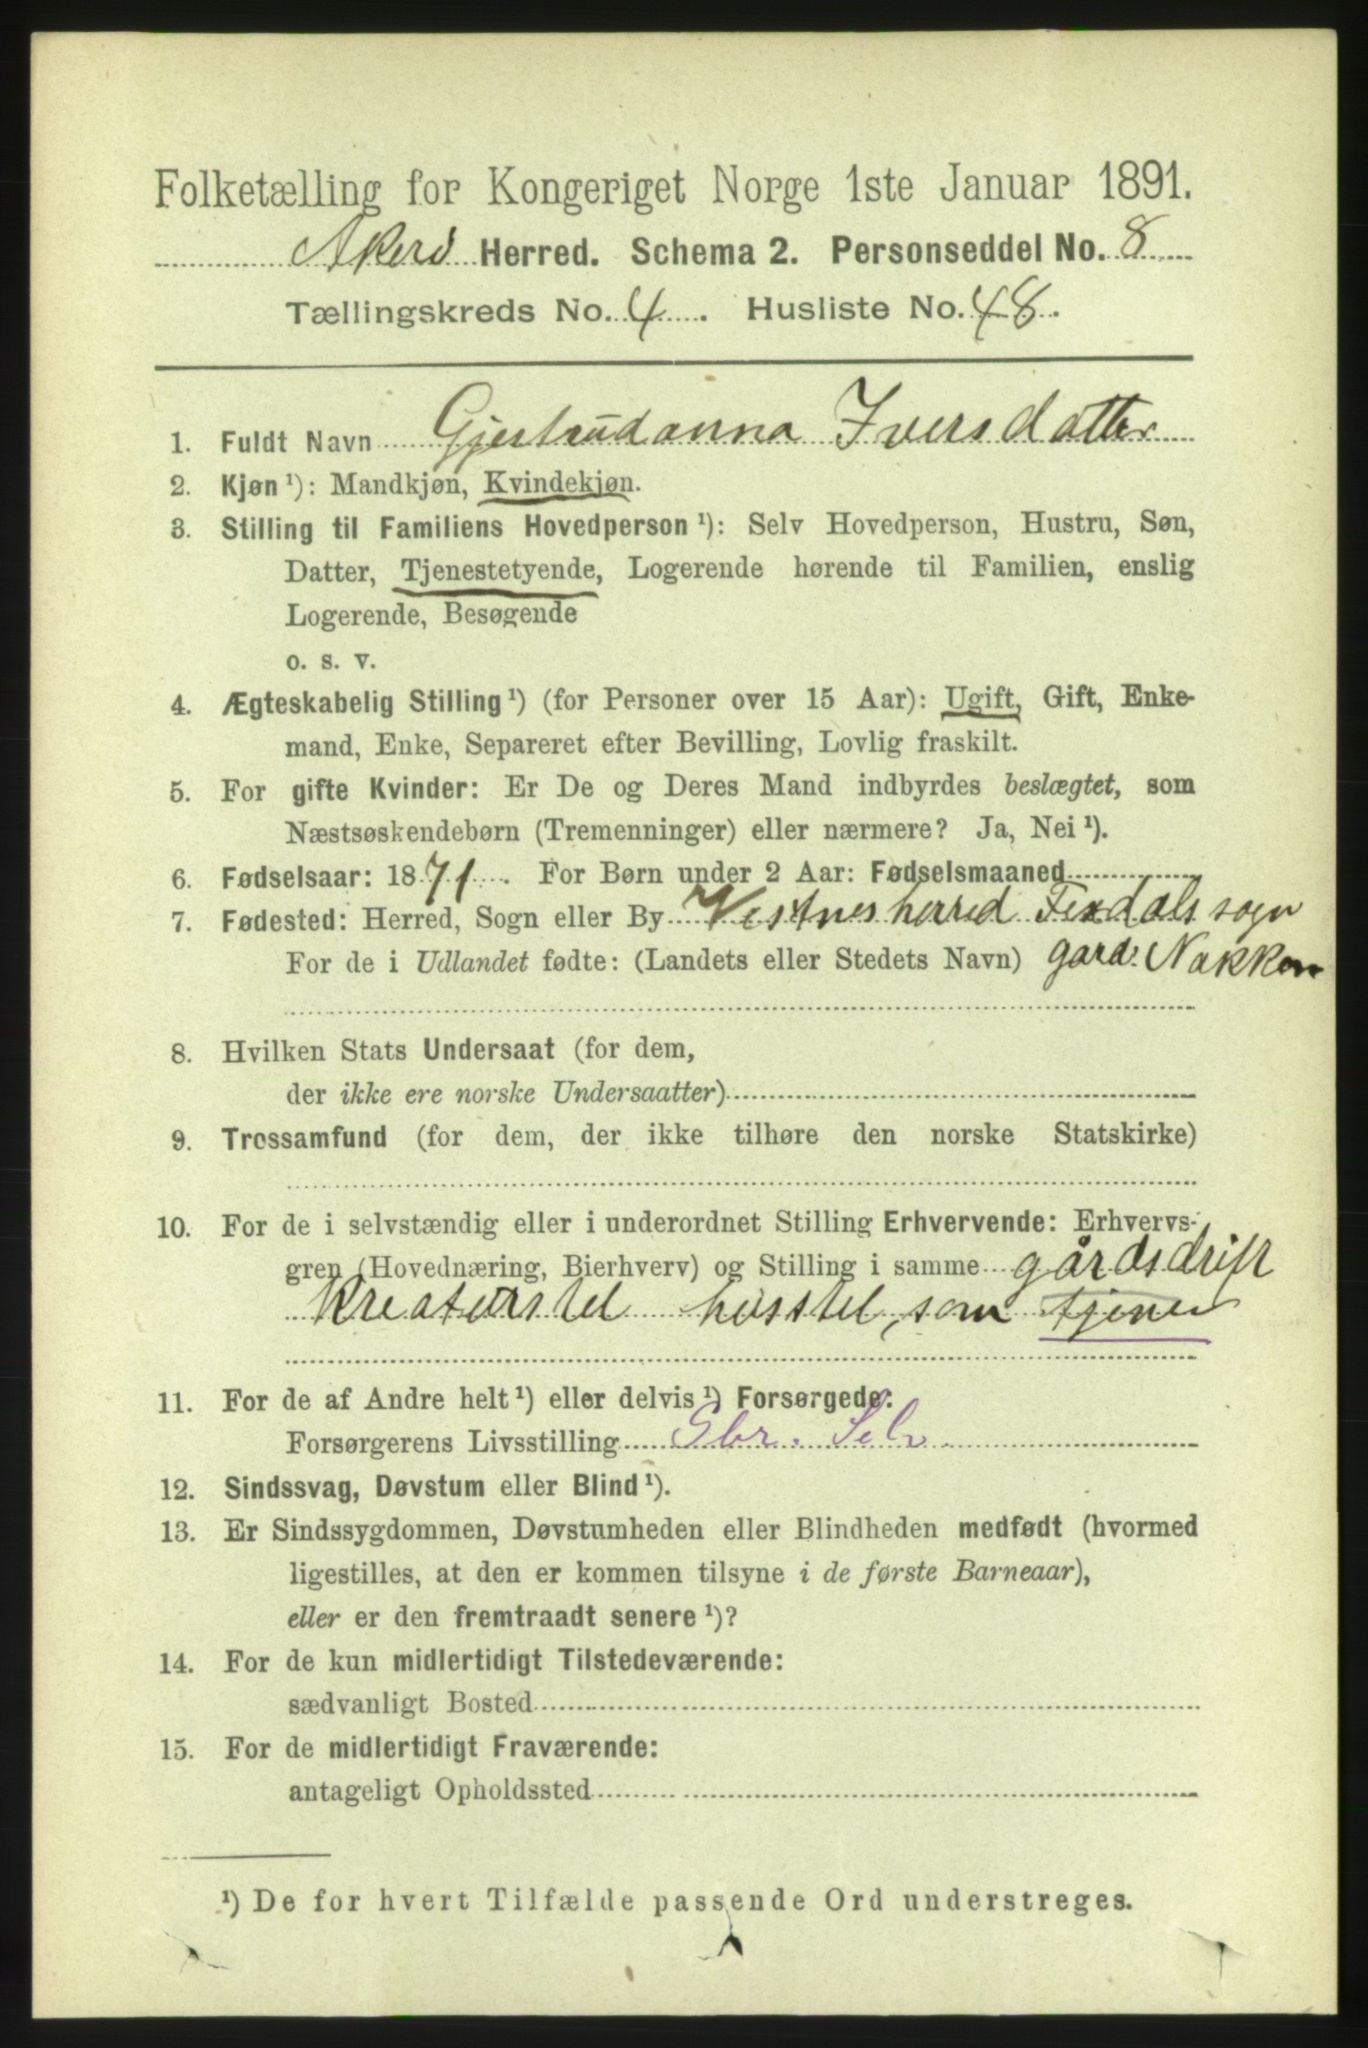 Folketælling for Kongeriget Norge 1ste Januar 1891.
Akerö Herred. Schema 2. Personseddel No. 8
Tællingskreds No. 4. Husliste No. 48.
1. Fuldt Navn Gjertrudanna Iversdatter
2. Kjøn ¹): Mandkjøn, Kvindekjøn.
3. Stilling til Familiens Hovedperson ¹): Selv Hovedperson, Hustru, Søn,
Datter, Tjenestetyende, Logerende hørende til Familien, enslig
Logerende, Besøgende
o. s. v.
4. Ægteskabelig Stilling ¹) (for Personer over 15 Aar): Ugift, Gift, Enke-
mand, Enke, Separeret efter Bevilling, Lovlig fraskilt.
5. For gifte Kvinder: Er De og Deres Mand indbyrdes beslægtet, som
Næstsøskendebørn (Tremenninger) eller nærmere? Ja, Nei ¹).
6. Fødselsaar: 1871. For Børn under 2 Aar: Fødselsmaaned
7. Fødested: Herred, Sogn eller By Vestnes herred Fixdals sogn
For de i Udlandet fødte: (Landets eller Stedets Navn) gard. Nakken
8. Hvilken Stats Undersaat (for dem,
der ikke ere norske Undersaatter)
9. Trossamfund (for dem, der ikke tilhøre den norske Statskirke)
10. For de i selvstændig eller i underordnet Stilling Erhvervende: Erhvervs-
gren (Hovednæring, Bierhverv) og Stilling i samme gårdsdrift
kreaturstel husstel, som tjener
11. For de af Andre helt ¹) eller delvis ¹) Forsørgede:
Forsørgerens Livsstilling Gbr. Selv
12. Sindssvag, Døvstum eller Blind ¹).
13. Er Sindssygdommen, Døvstumheden eller Blindheden medfødt (hvormed
ligestilles, at den er kommen tilsyne i de første Barneaar),
eller er den fremtraadt senere ¹)?
14. For de kun midlertidigt Tilstedeværende:
sædvanligt Bosted
15. For de midlertidigt Fraværende:
antageligt Opholdssted
¹) De for hvert Tilfælde passende Ord understreges.